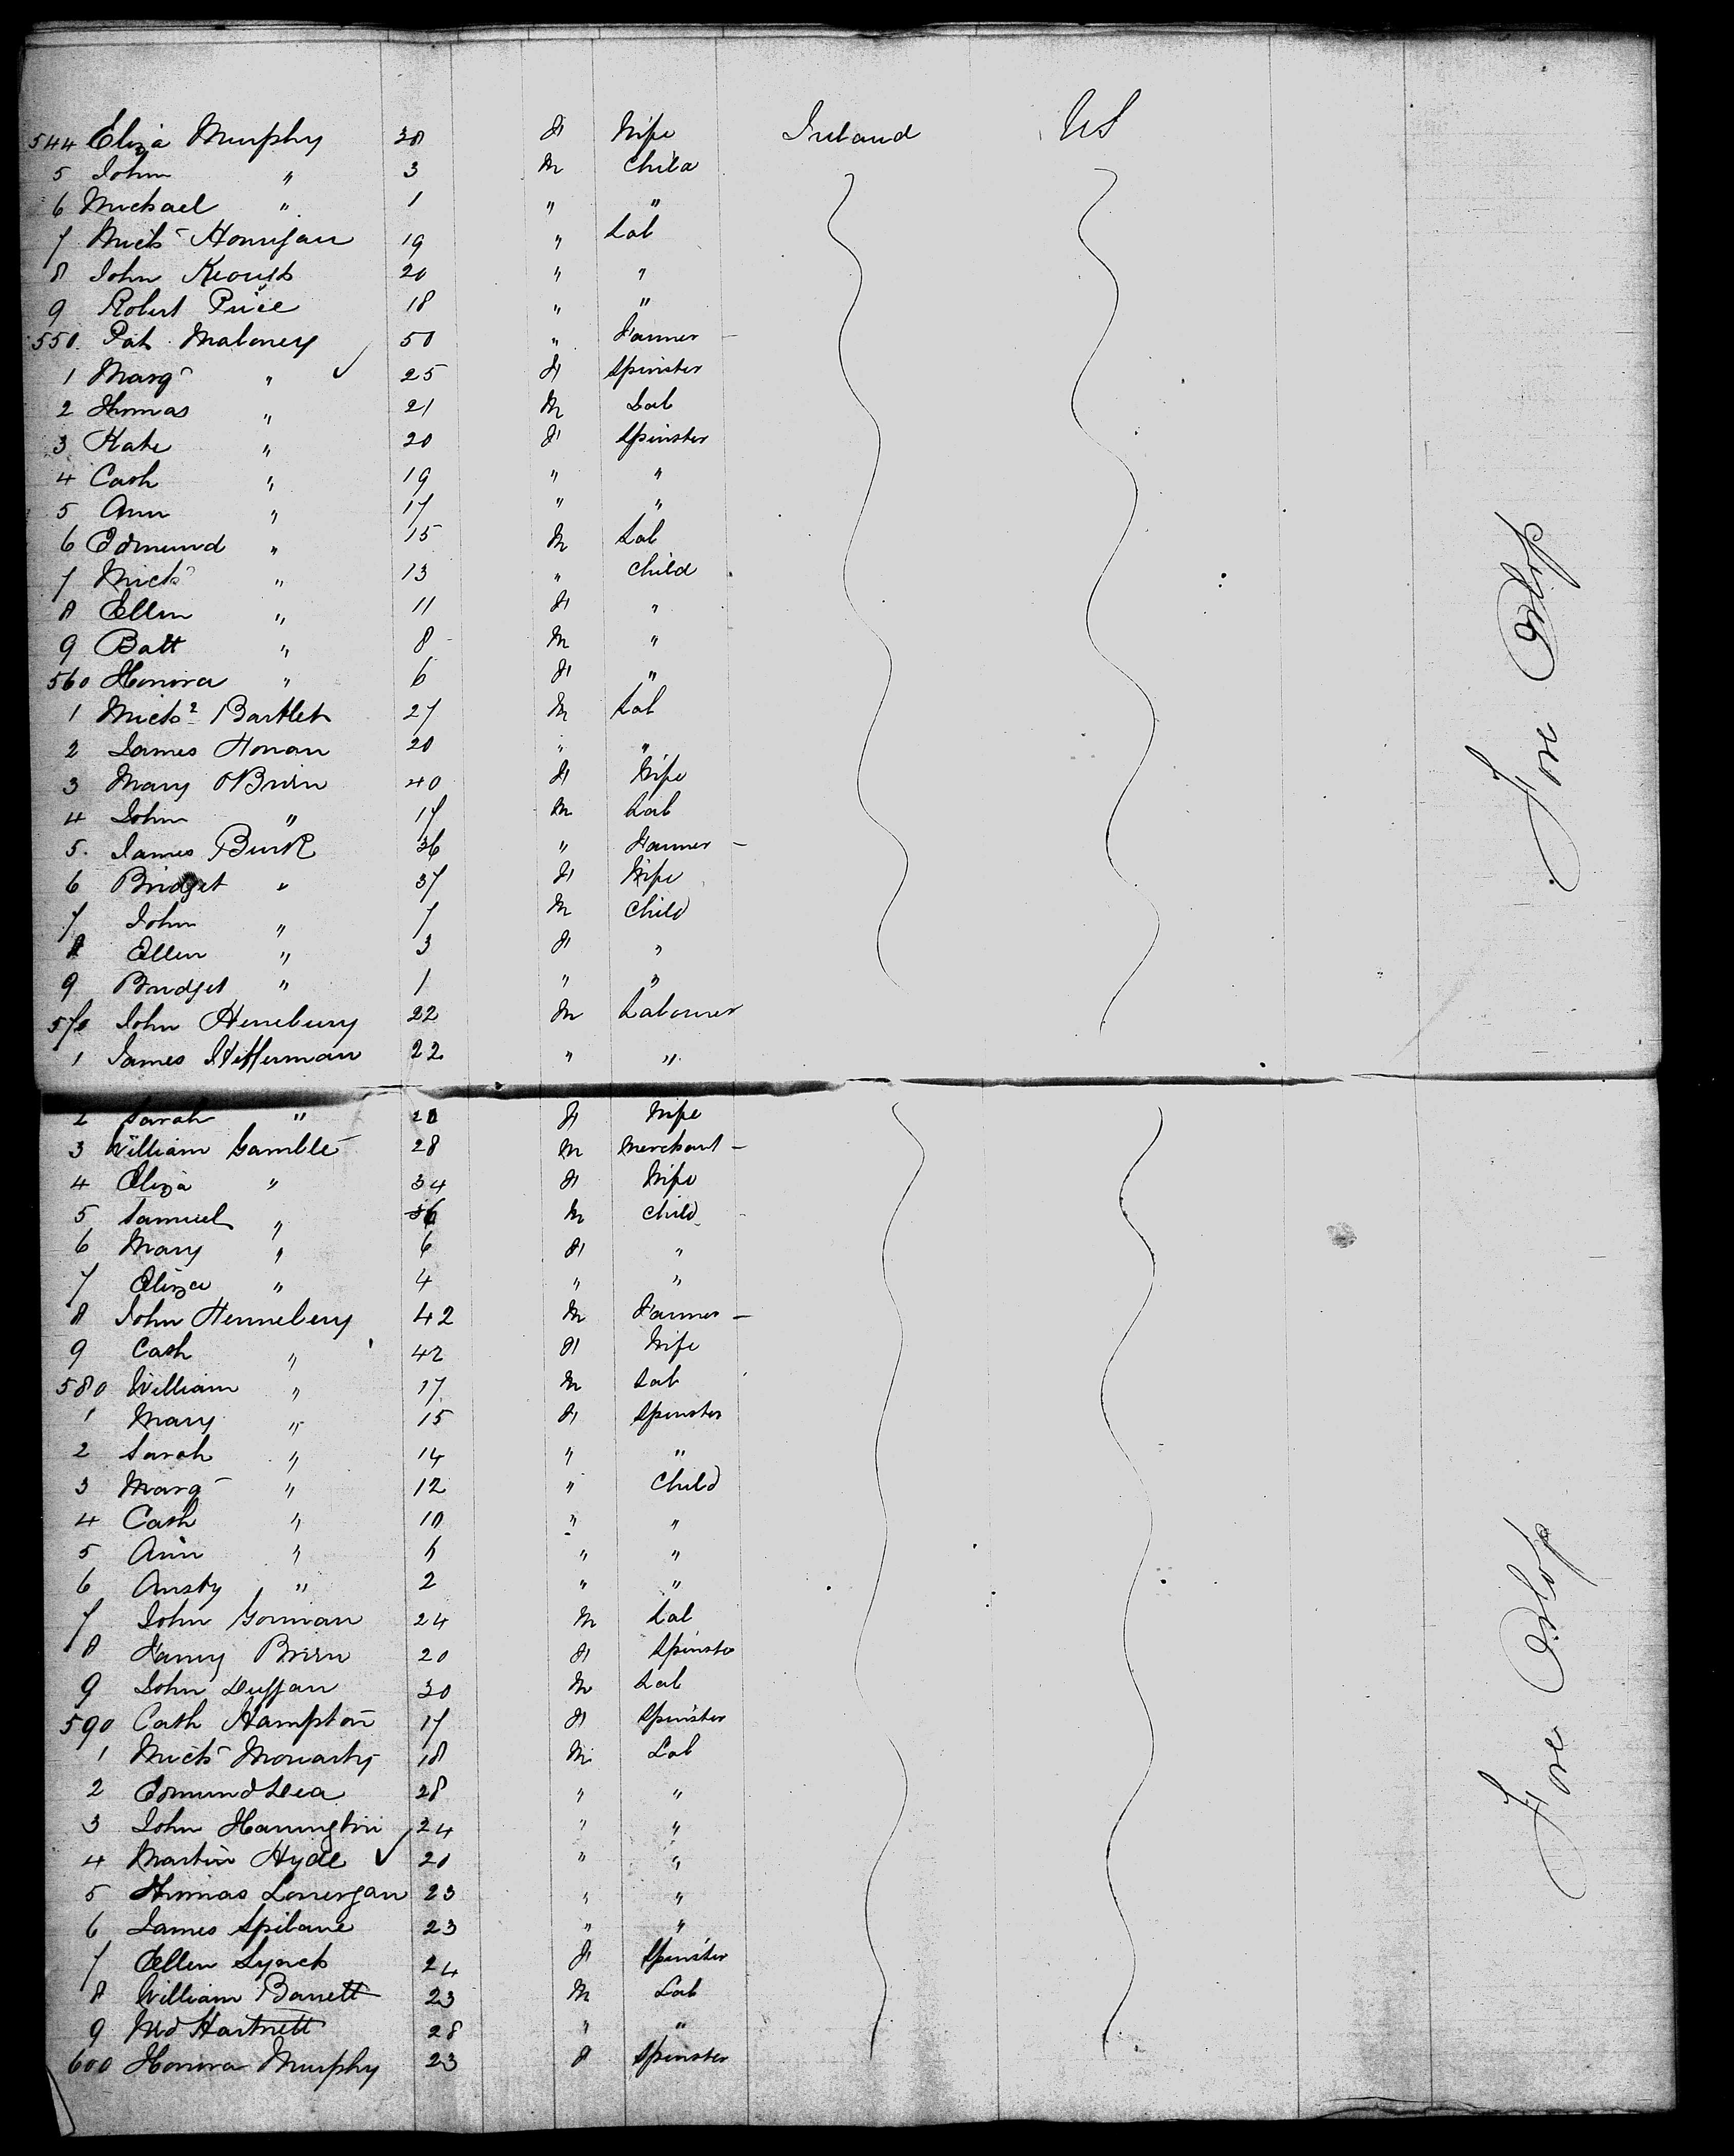 544 Eliza Murphy 30 F Wife Ireland US
5 John " 3 M Child
6 Michael " 1 " "
7 Mich Honigan 19 " Lab
8 John Keough 20 " "
9 Robert Price 18 " "
550 Pat Maloney 50 " Farmer -
1 Marg " 25 F Spinster
2 Thomas " 21 M Lab
3 Kate " 20 F Spinster
4 Cath " 19 " "
5 Ann " 17 " "
6 Edmund " 15 M Lab
7 Mich " 13 " Child
8 Ellen " 11 F "
9 Batt " 8 M "
560 Honora " 6 F "
1 Michl Bartlet 27 M Lab
2 James Honan 20 " "
3 Mary OBrien 40 F Wife
4 John " 17 M Lab
5 James Burk 36 " Farmer -
6 Bridget " 37 F Wife
7 John " 7 M Child
8 Ellen " 3 F "
9 Bridget " 1 " "
570 John Henebury 22 M Labourer
1 James Heffernan 22 " "
2 Sarah " 20 F Wife
3 William Gamble 28 M Merchant -
4 Eliza " 34 F Wife
5 Samuel " M Child
6 Mary " 6 F "
7 Eliza " 4 " "
8 John Hennebery 42 M Farmer -
9 Cath " 42 F Wife
580 William " 17 M Lab
1 Mary " 15 F Spinster
2 Sarah " 14 " "
3 Marg " 12 " Child
4 Cath " 10 " "
5 Ann " " "
6 Ansty " 2 " "
7 John Gorman 24 M Lab
8 Fanny Brien 20 F Spinster
9 John Duggan 30 M Lab
590 Cath Hampton 17 F Spinster
1 Mich Moriarty 18 M Lab
2 Edmund Dea 28 " "
3 John Harrington 24 " "
4 Martin Hyde 20 " "
5 Thomas Lonergan 23 " "
6 James Spilane 23 " "
7 Ellen Lynch 24 F Spinster
8 William Barrett 23 M Lab
9 Wd Hartnett 28 " "
600 Honora Murphy 23 F Spinster
Fore Orlop
Fore Orlop